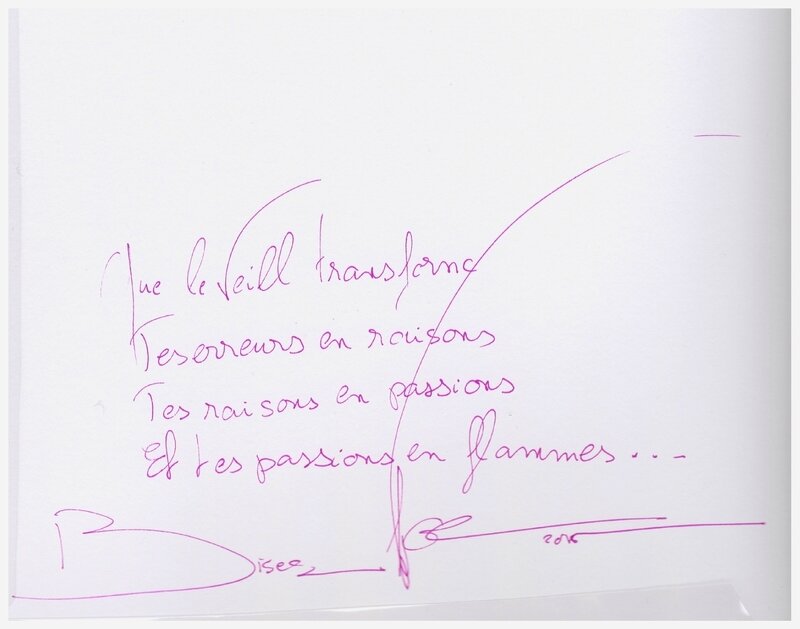 Que le Veill transforme
Tes erreurs en raisons
Tes raisons en passions
Et tes passions en flammes...
Bises
2016